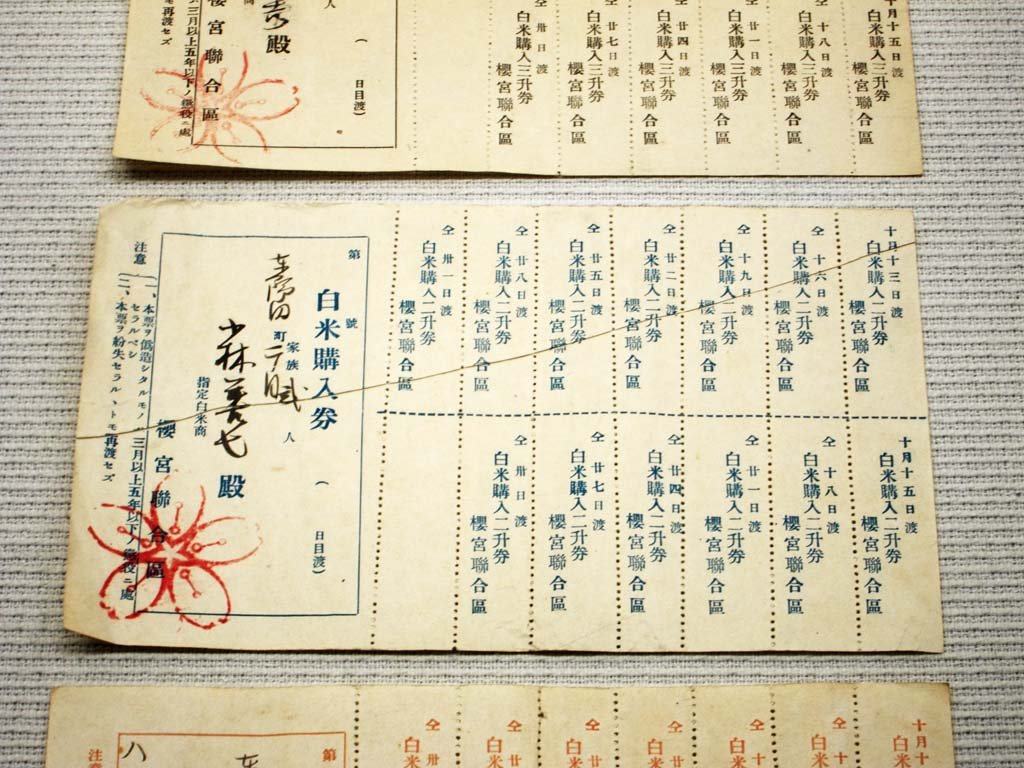 十月十五日渡
白米購入三升券
櫻宮聯合區
十八日渡
白米購入三升券
櫻宮聯合區
廿一日渡
白米購入三升券
櫻宮聯合區
廿四日渡
白米購入三升券
櫻宮聯合區
廿七日渡
白米購入三升券
櫻宮聯合區
卅日渡
白米購入三升券
櫻宮聯合區
人
(日目渡)
殿
櫻宮聯合區
三月以上五年以下ノ懲役ニ處
モ再渡セズ
十月十三日渡
白米購入二升券
櫻宮聯合區
仝十六日渡
白米購入二升券
櫻宮聯合區
仝十九日渡
白米購入二升券
櫻宮聯合區
仝廿二日渡
白米購入二升券
櫻宮聯合區
仝廿五日渡
白米購入二升券
櫻宮聯合區
仝廿八日渡
白米購入二升券
櫻宮聯合區
仝卅一日渡
白米購入二升券
櫻宮聯合區
十月十五日渡
白米購入二升券
櫻宮聯合區
仝十八日渡
白米購入二升券
櫻宮聯合區
仝廿一日渡
白米購入二升券
櫻宮聯合區
仝廿四日渡
白米購入二升券
櫻宮聯合區
仝廿七日渡
白米購入二升券
櫻宮聯合區
仝卅日渡
白米購入二升券
櫻宮聯合區
第號
白米購入券(日目渡)
家族人
町
小林善七殿
指定白米商
櫻宮聯合區
注意
一、本票ヲ僞造シタルモノハ三月以上五年以下ノ懲役ニ處
セラルベシ
二、本票ヲ紛失セラルヽトモ再渡セズ
十月十
白米
仝十
白米
仝十
白米
仝廿
白米
仝廿
白米
仝廿
白米
仝卅
白米
第
八
注意